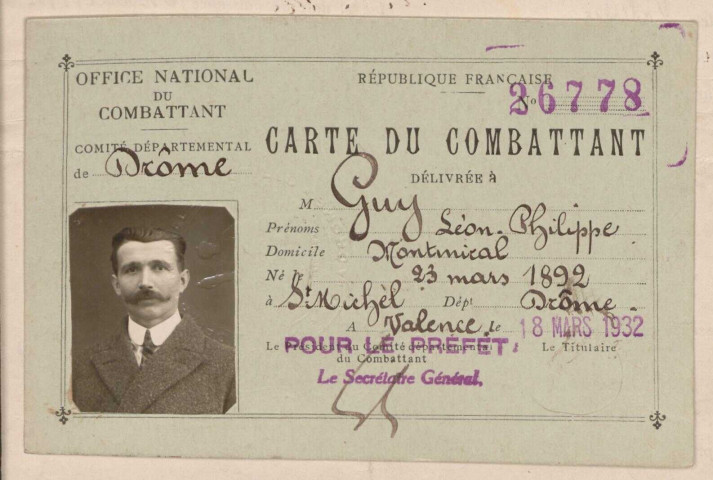 OFFICE NATIONAL
DU
COMBATTANT
COMITÉ DÉPARTEMENTAL
de Drôme
RÉPUBLIQUE FRANÇAISE
No 26778
CARTE DU COMBATTANT
DÉLIVRÉE À
M Guy
Prénoms Léon-Philippe
Domicile Montmiral
Né le 23 mars 1892
à St Michel Dépt Drôme
A Valence le 18 MARS 1932
Le Président du Comité départemental
du Combattant
Le Titulaire
POUR LE PRÉFET:
Le Secrétaire Général,